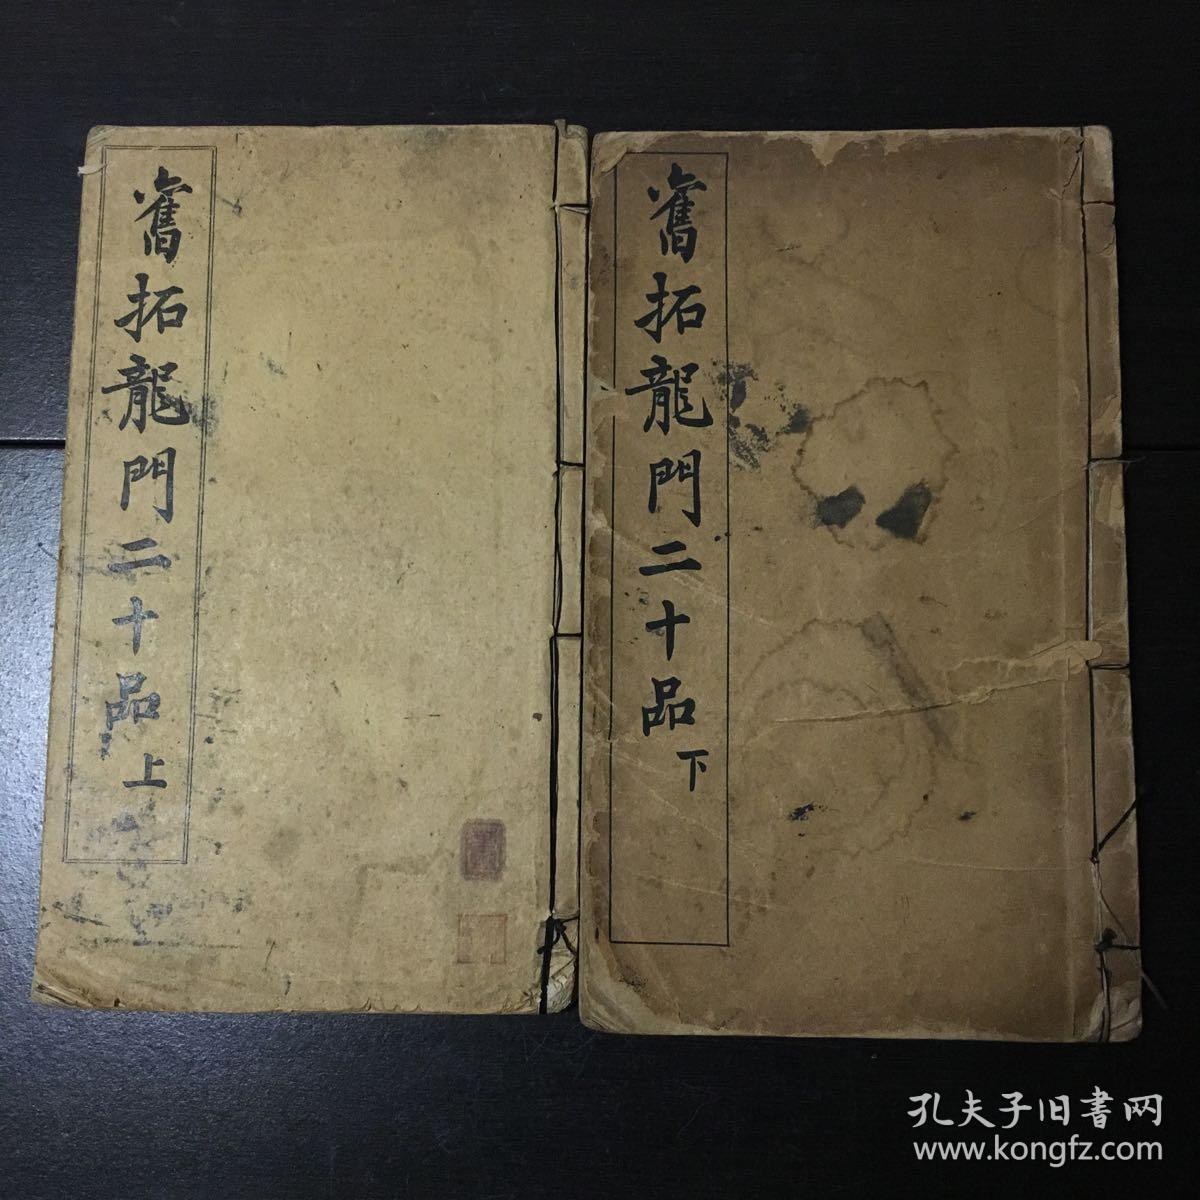 舊拓龍門二十品上
舊拓龍門二十品下
孔夫子旧書网
www.kongfz.com